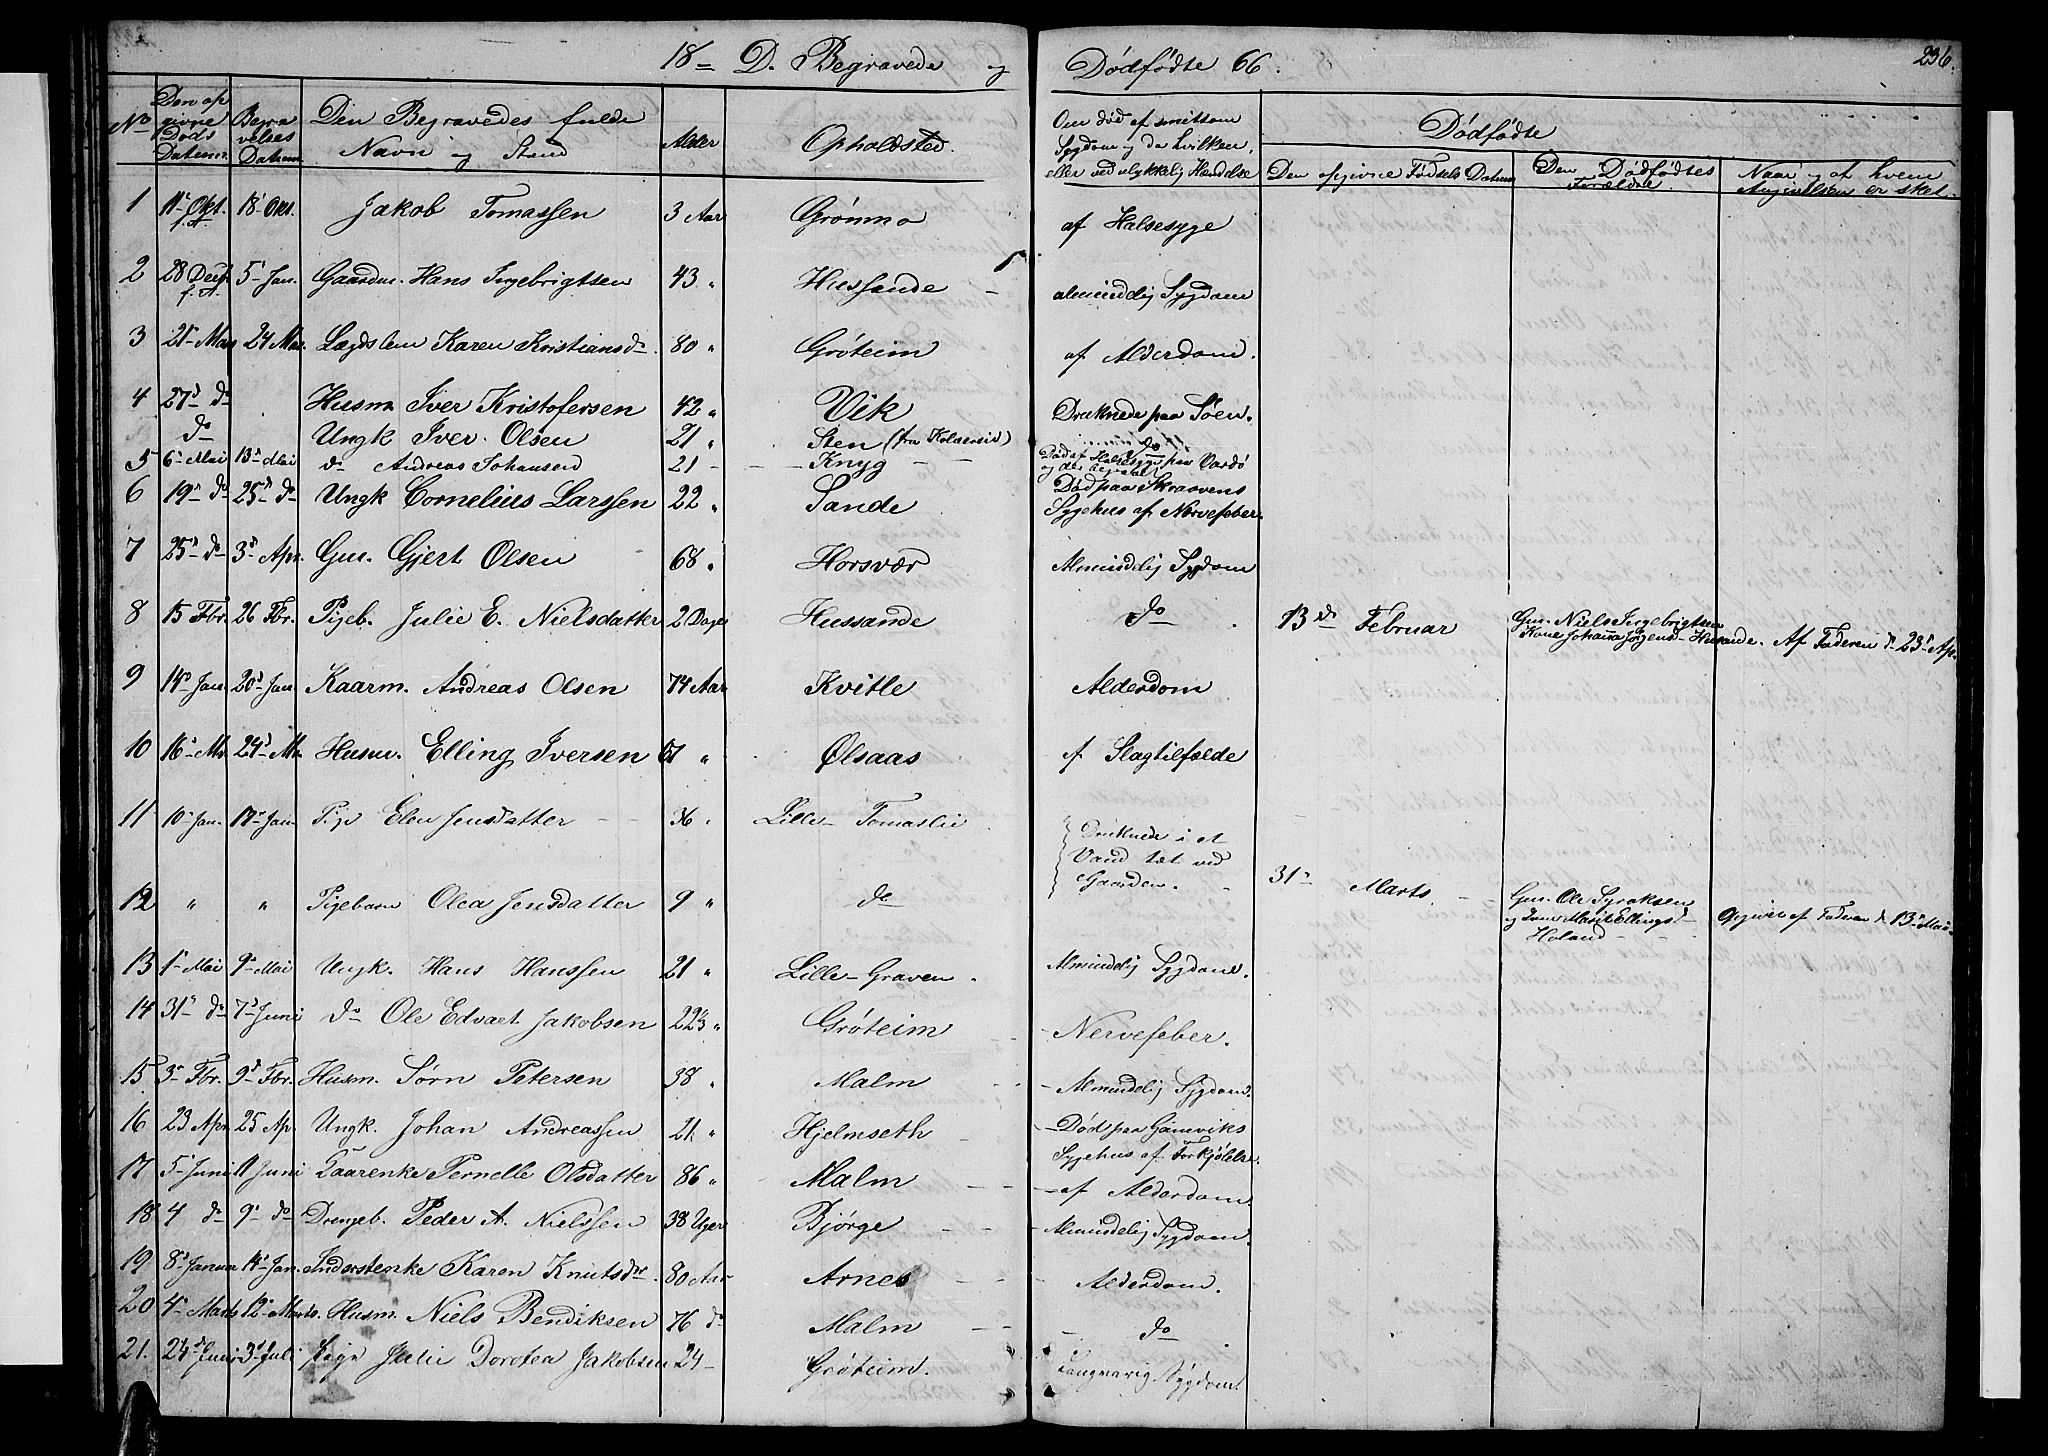 18 D. Begravede og Dødfødte 66. 236.
No Den opgivne Døds Datum. Begravelses Datum. Den Begravedes fulde Navn og Stand Alder Opholdsted. Om død af smitsom Sygdom og da hvilken, eller ved ulykkelig Hændelse Dødfødte
Den opgivne Fødsels Datum Den Dødfødtes Forældre. Naar og af hvem Angivelsen er sket.
1 11t Okt. f. A. 18t Okt. Jakob Tomassen 3 Aar Grønmo af Halsesyge
2 28 Desb. f. A. 5t Jan. Gaardm. Hans Ingebrigtsen 43 " Hussande almindelig Sygdom
3 21t Mars 24 Mar. Lægdslem Karen Kristiansdr. 80 " Grøteim af Alderdom.
4 27d do Husm Iver Kristofersen 42 " Vik Druknede paa Søen.
do Ungk Iver Olsen 21 " Sten (fra Kolversid) do
5 6t Mai 13d Mai do Andreas Johansen 21 - Knyg Død af Halsesyge paa Vardø og der begravet
6 19d do 25d do Ungk Cornelius Larssen 22 " Sande Død paa Skraavens Sygehus af Nervefeber.
7 25d do 3d Apr. Gm. Gjert Olsen 68 " Horsvær Almindelig Sygdom
8 15 Fbr. 26 Fbr. Pigeb. Julie E. Nielsdatter 2 Dage Hussande do 13de Februar Gm. Niels Ingebrigtsen Kone Johanna Jørgensd. Hussande. Af Faderen d. 23d Ap.
9 14d Jan. 20d Jan Kaarm. Andreas Olsen 74 Aar Kvitle Alderdom
10 16t Mr. 24d Mr. Husm. Elling Iversen 61 " Ølsaas af Slagtilfælde
11 10t Jan. 17t Jan Pige Elen Jensdatter 36 " Lille-Tomaslie Druknede i et Vand tæt ved Gaarden.
12 " " Pigebarn Olea Jensdatter 9 " do 31t Marts. Gm. Ole Syraksen og Marit Ellingsd. Holand Opgivet af Faderen d. 13d Mai
13 1t Mai 9t Mai Ungk. Hans Hanssen 21 " Lille-Graven Almindelig Sygdom.
14 31t do 7d Juni do Ole Edvart Jakobsen 22 3/4 " Grøteim Nervefeber.
15 3t Fbr. 9d Fbr. Husm. Sørn Petersen 38 " Malm Almindelig Sygdom.
16 23 Apr. 25 Ap. Ungk. Johan Andreassen 21 " Hjelmseth Død paa Gamviks Sygehus af Forkjølelse.
17 5t Juni 11 Juni Kaarenke Pernelle Olsdatter 86 " Malm af Alderdom
18 4 do 9t do Drengeb. Peder A. Nielssen 38 Uger Bjørge Almindelig Sygdom.
19 8d Januar 14t Jan. Inderstenke Karen Knutsdr. 80 Aar Arnes Alderdom.
20 4t Marts 12t Marts. Husm. Niels Bendiksen 76 do Malm do
21. 24d Juni 3d Juli Pige Julie Dorotea Jakobsen 24 - Grøteim. Langvarig Sygdom.